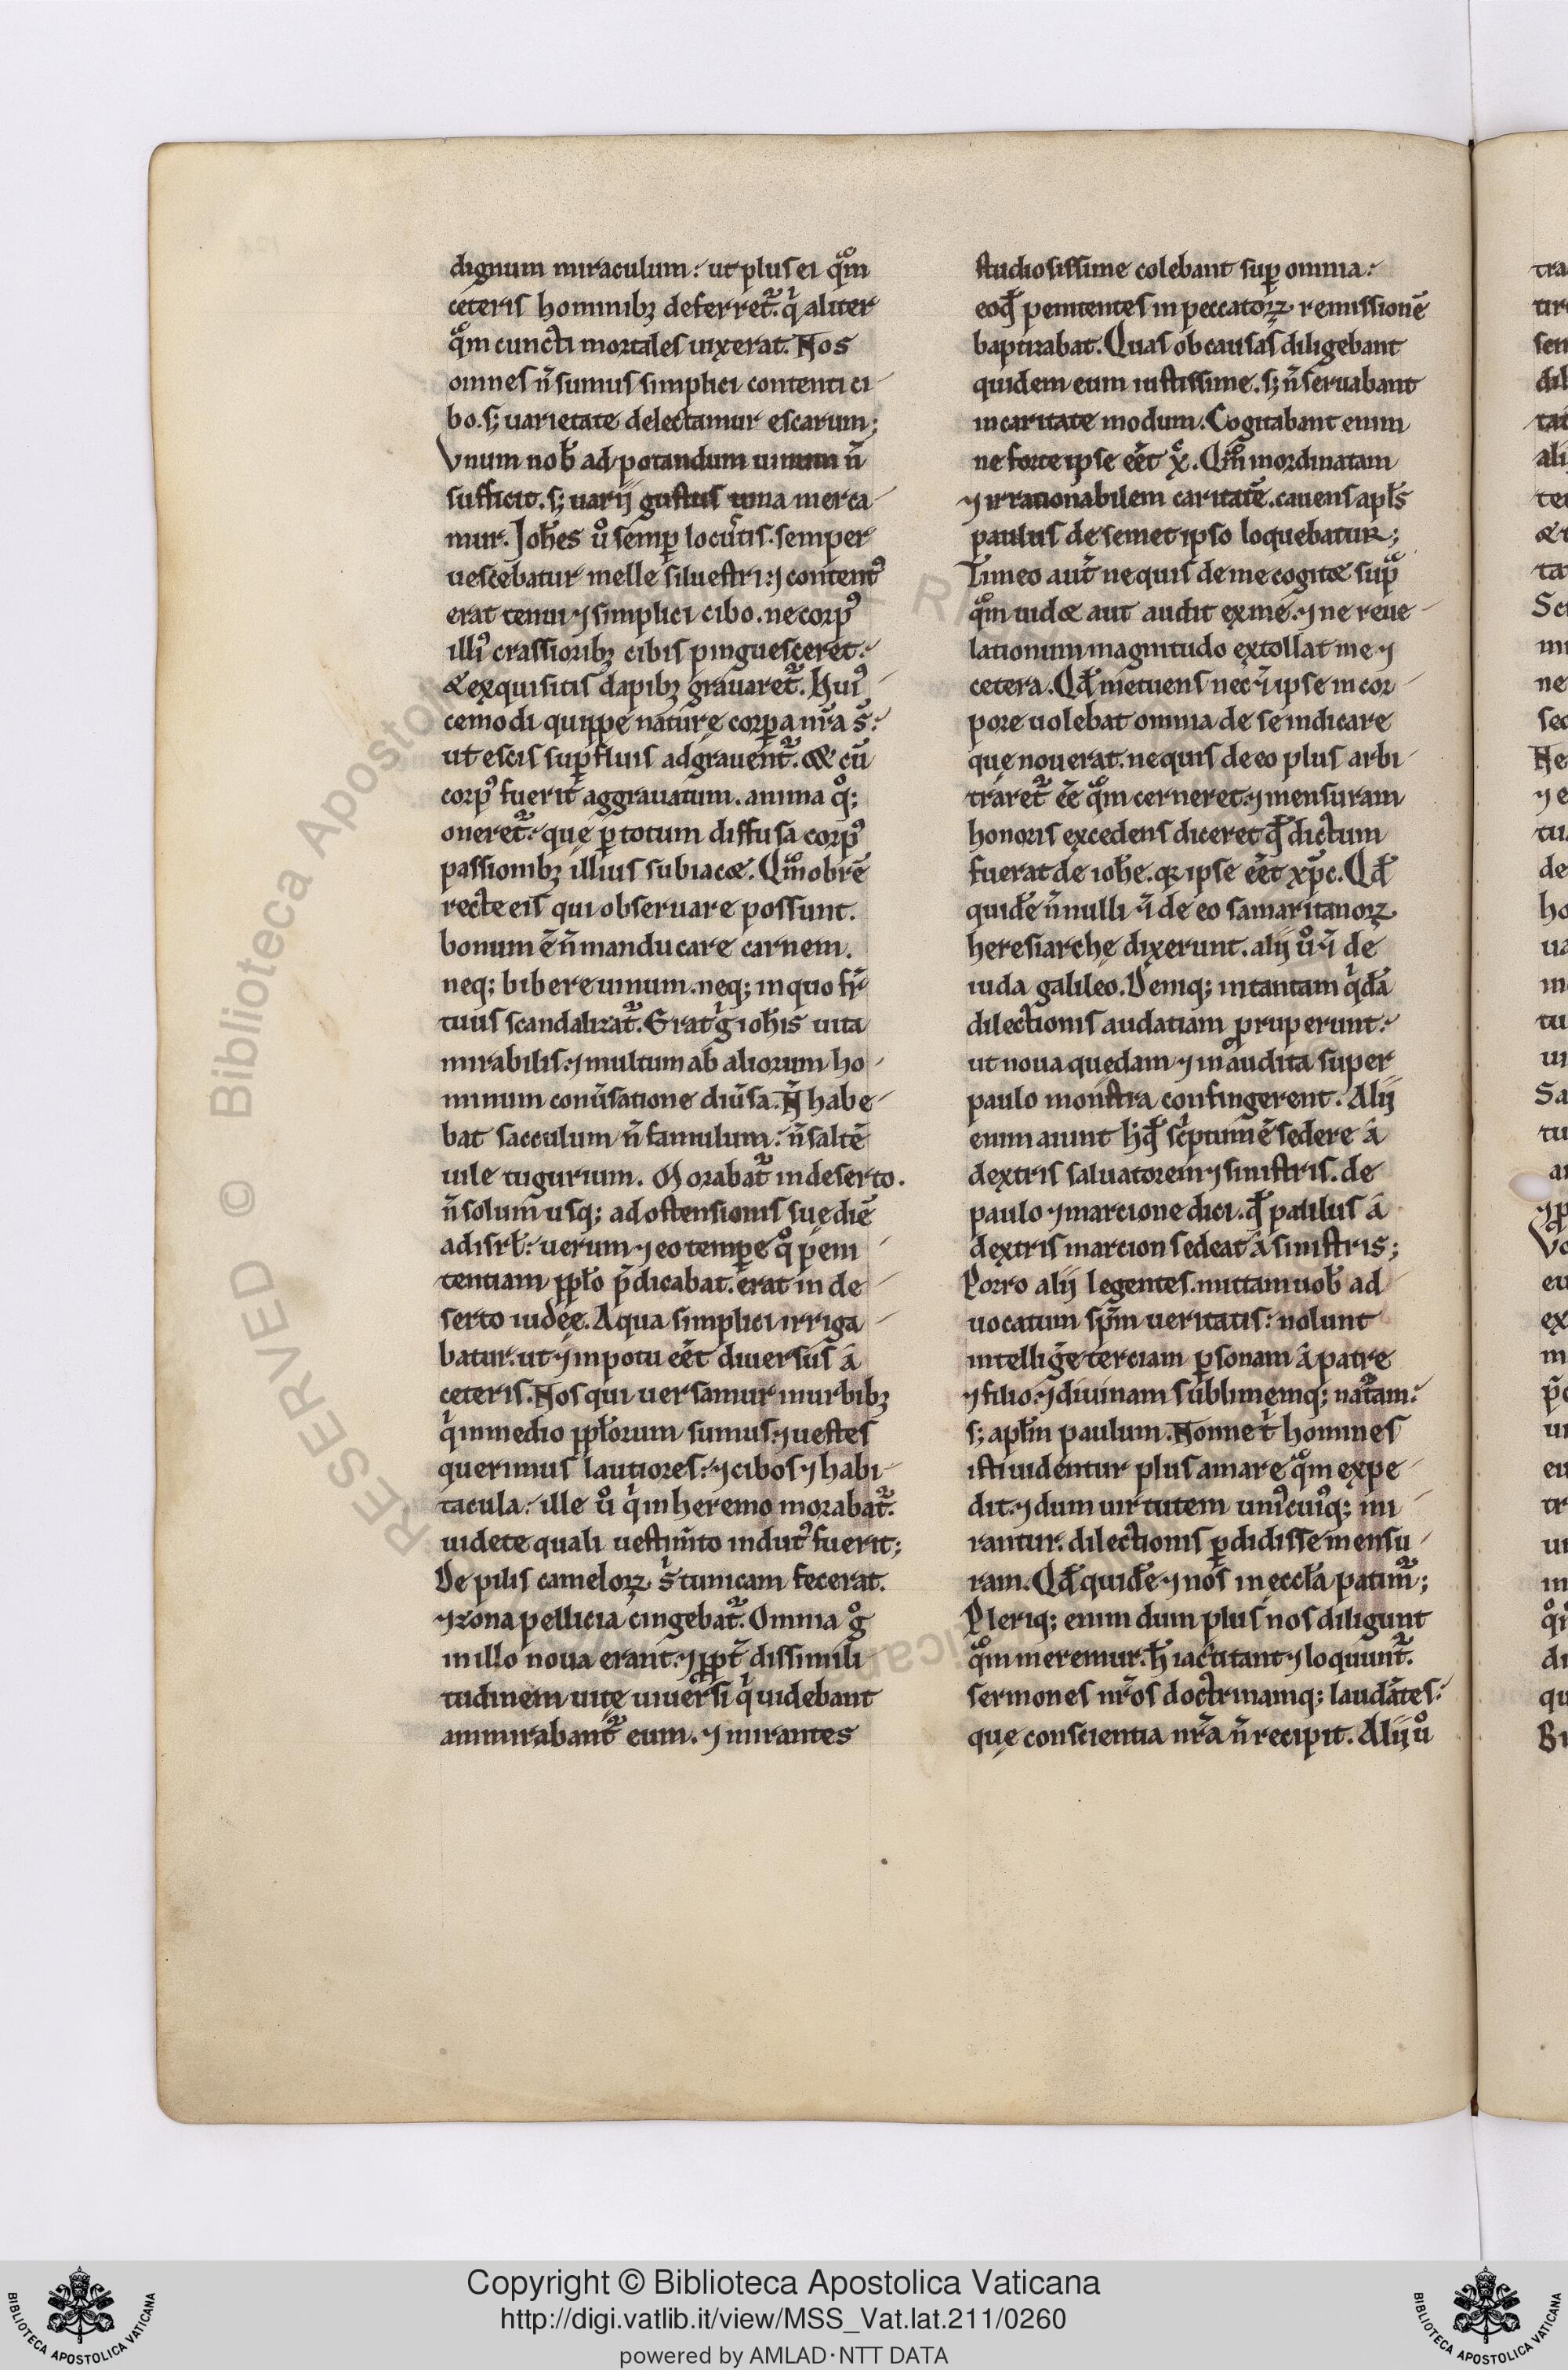 dignum miraculum: ut plus ei qͦm
ceteris hominibꝫ deferret᷑. qͥ aliter
qͦm cuncti mortales uixerat. Nos
omnes n̄ sumus simplici contenti ci
bo. s; uarietate delectamur escarum;
Vnum nob̄ ad potandum uinum n̄
sufficit. s; uarij gustus uina merca
mur. Joh̄es ů semꝑ locustis. semper
uescebatur melle siluestri: ⁊ content᷒
erat tenui ⁊ simplici cibo. ne corp᷒
illi᷒ crassioribꝫ cibis pinguesceret:
& exquisitis dapibꝫ grauaret᷑. Hui᷒
cemodi quippe naturę corꝑa nr̄a s̄:
ut escis suꝑfluis adgrauent᷑. & cū
corp᷒ fuerit aggrauatum. anima qͦ;
oneret᷑: quę ꝑ totum diffusa corp᷒
passionibꝫ illius subiacet. Qͣmobrē
recte eis qui obseruare possunt.
bonum ē n̄ manducare carnem.
neq; bibere uinum. neq; in quo fr̄
tuus scandalizat᷑. Erat gͥ ioh̄is uita
mirabilis: ⁊ multum ab aliorum ho
minum conūsatione diūsa. N̄ habe
bat sacculum n̄ famulum: n̄ saltē
uile tugurium. Morabat᷑ in deserto.
n̄ solum usq; ad ostensionis suę diē
ad isrł: uerum ⁊ eo temꝑe qͦ peni
tentiam pplo p̄dicabat. erat in de
serto iudeę. Aqua simplici irriga
batur. ut ⁊ in potu eēt diuersus a
ceteris. Nos qui uersamur in urbibꝫ
qͥ in medio ppłorum sumus: ⁊ uestes
querimus lautiores: ⁊ cibos ⁊ habi
tacula: ille ů qͥ in heremo morabat᷑.
uidete quali uestim̄to indut᷒ fuerit;
De pilis cameloꝝ s̄ tunicam fecerat.
⁊ zona pellicia cingebat᷑. Omnia gͦ
in illo noua erant. ⁊ ppt̄ dissimili
tudinem uitę uniuersi qͥ uidebant
ammirabant᷑ eum. ⁊ mirantes
studiosissime colebant suꝑ omnia:
eo qđ penitentes in peccatoꝝ remissionē
baptizabat. Quas ob causas diligebant
quidem eum iustissime. s; n̄ seruabant
in caritate modum. Cogitabant enim
ne forte ipse eēt xͨ. Qͣm inordinatam
⁊ irrationabilem caritatē. cauens apłs
paulus de semet ipso loquebatur;
Timeo aut̄ ne quis de me cogitet supͣ
qͦm uidet aut audit ex me. ⁊ ne reue
lationum magnitudo extollat me ⁊
cetera. Qđ metuens nec ⁊̄ ipse in cor
pore uolebat omnia de se indicare
quę nouerat. ne quis de eo plus arbi
traret᷑ eē qͦm cerneret. ⁊ mensuram
honoris excedens diceret qđ dictum
fuerat de ioh̄e. qꝛ ipse eēt xp̄c. Qđ
quidē n̄nulli ⁊̄ de eo samaritanoꝝ
heresiarchę dixerunt. alij ů ⁊̄ de
iuda galileo. Deniq; in tantam qͥdā
dilectionis audatiam ꝓruperunt:
ut noua quedam ⁊ inaudita super
paulo monstra confingerent. Alij
enim aiunt h̄ qđ scͥptum ē sedere a
dextris saluatorem ⁊ sinistris. de
paulo ⁊ marcione dici. qđ palus a
dextris marcion sedeat a sinistris;
Porro alij legentes. mittam uob̄ ad
uocatum sp̄m ueritatis: nolunt
intelligē terciam ꝑsonam a patre
⁊ filio: ⁊ diuinam sublimemq; nat᷑am:
s; apłm paulum. Nonne t̄ homines
isti uidentur plus amare qͦm expe
dit. ⁊ dum uirtutem uni᷒cui᷒q; mi
rantur. dilectionis ꝑdidisse mensu
ram. Qđ quidē ⁊ nos in eccła patim᷑;
Pleriq; enim dum plus nos diligunt
qͦm meremur. h̄ iactitant ⁊ loquunt᷑.
sermones nr̄os doctrinamq; laudātes:
quę conscientia nr̄a n̄ recipit. Alij ů
Copyright © Biblioteca Apostolica Vaticana
http://digi.vatlib.it/view/MSS_Vat.lat.211/0260
powered by AMLAD·NTT DATA